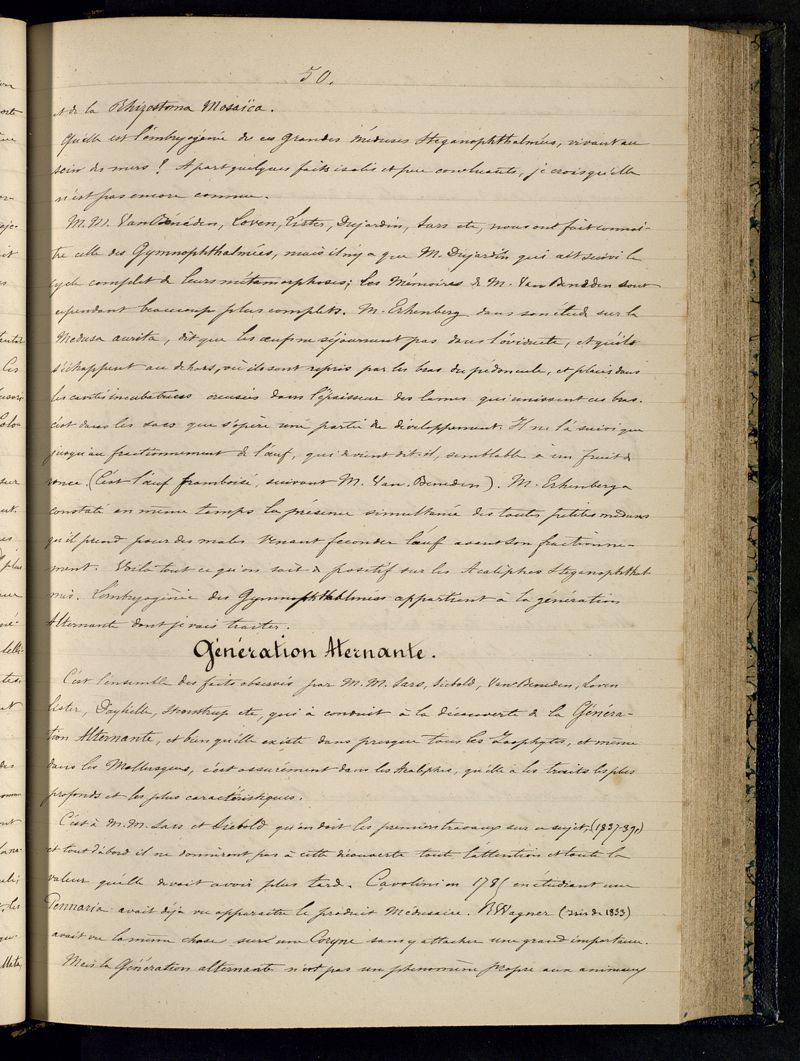 50.
et de la Rhizostoma Mosaïca.
Quelle est l'embryogénie de ces grandes méduses Steganophthalmées, vivant au
sein des mers ? A part quelques faits isolés et peu concluants, je crois qu'elle
n'est pas encore connue.
M.M. Van Bénéden, Loven, Lister, Dujardin, Sars etc, nous ont fait connaî-
tre celle des Gymnophthalmées, mais il n'y a que M. Dujardin qui ait suivi le
cycle complet de leurs métamorphoses; les Mémoires de M. Van Beneden sont
cependant beaucoup plus complets. M. Erhenberg dans son étude sur la
Medusa aurita, dit que les œufs ne séjournent pas dans l'oviducte, et qu'ils
s'échappent au dehors, où ils sont repris par les bras du pédoncule, et placés dans
les cavités incubatrices creusées dans l'épaisseur des lames qui unissent ces bras.
c'est dans les sacs que s'opère une partie de développement. Il ne l'a suivi que
jusqu'au fractionnement de l'œuf, qui devient dit-il, semblable à un fruit de
ronce. (C'est l'œuf framboisé, suivant M. Van. Beneden). M. Erhenberg a
constaté en même temps la présence simultanée des toutes petites méduses
qu'il prend pour des mâles venant féconder l'œuf avant son fractionne-
ment. Voilà tout ce qu'on sait de positif sur les Acalèphes Steganophthal-
més. L'embryogénie des Gymnophthalmées appartient à la génération
Alternante dont je vais traiter.
Génération Aternante.
C'est l'ensemble des faits observés par M.M. Sars, Siebold, Van Beneden, Loven
Lister, Dayhelle, Steenstrup etc, qui à conduit à la découverte de la Généra-
tion Alternante, et bien qu'elle existe dans presque tous les Zoophytes, et même
dans les Mollusques, c'est assurément dans les Acalèphes, qu'elle a les traits les plus
profonds et les plus caractéristiques.
C'est à M.M. Sars et Siebold qu'on doit les premiers travaux sur ce sujet, (1837-39)
et tout d'abord il ne donnèrent pas à cette découverte toute l'attention et toute la
valeur qu'elle devait avoir plus tard. Cavolini en 1785 en étudiant une
Pennaria avait déjà vu apparaître le produit Médusaire. R. Wagner (Isis de 1833)
avait vu la même chose sur une Coryne sans y attacher une grand importance.
Mais la Génération alternante n'est pas un phénomène propre aux animaux